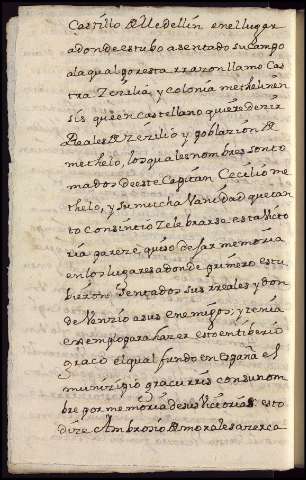 Castillo de Medellin en el lugar
adonde estubo asentado su Campo
ala qual por esta rrazon llamo Cas
tra Zezilia y colonia methelinen
sis que en Castellano quiere dezir
Reales de Zezilio y poblazion de
methelo, los quales nombres son to
mados de este Capitan Cecilio me
thelo, y su mucha Vanidad que tan
to consintio Zelebrarse esta Victo
ria pareze, quiso dejar memoria
en los lugares adonde primero estu
bieron sentados sus rreales y don
de Venzio a sus Enemigos; y tenia
exemplo para hazer esto en tiberio
graco el qual fundo en España el
munizipio gracurris con su nom
bre por memoria de sus Victorias: esto
dize Ambrosio de morales azerca